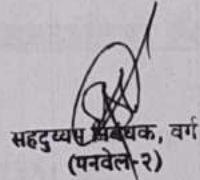 सहदुय्यम निबंधक, वर्ग
(पनवेल-२)